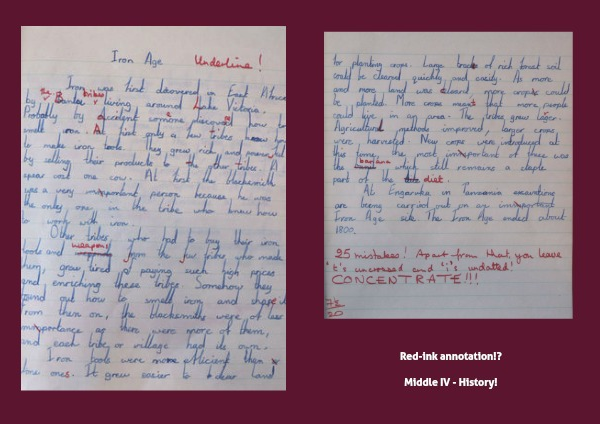 Iron Age Underline!
Iron was first discovered in East Africa
by the Bantu tribes living around Lake Victoria.
Probably by accident someone discovered how to
smelt iron. At first only a few tribes knew how
to make iron tools. They grew rich and powerful
by selling their products to the other tribes. A
spear cost one cow. At first the blacksmith
was a very important person because he was
the only one in the tribe who knew how
to work with iron.
Other tribes, who had to buy their iron
tools and weapons from the few tribes who made
them, grew tired of paying such high prices
and enriching these tribes. Somehow they
found out how to smelt iron and shape it
From then on, the blacksmiths were of less
importance as there were more of them,
and each tribe or village had its own.
Iron tools were more efficient than
stone ones. It grew easier to clear land
for planting crops. Large tracks of rich forest soil
could be cleared quickly and easily. As more
and more land was cleared, more crops could
be planted. More crops meant that more people
could live in an area. The tribes grew larger.
Agricultural methods improved, larger crops
were harvested. New crops were introduced at
this time, the most important of these was
the banana which still remains a staple
part of the diet.
At Engaruka in Tanzania excavations
are being carried out on an important
Iron Age site. The Iron Age ended about
1800.
25 mistakes! Apart from that, you leave
't's uncrossed and 'i's undotted!
CONCENTRATE!!!
20
Red-ink annotation!?
Middle IV - History!